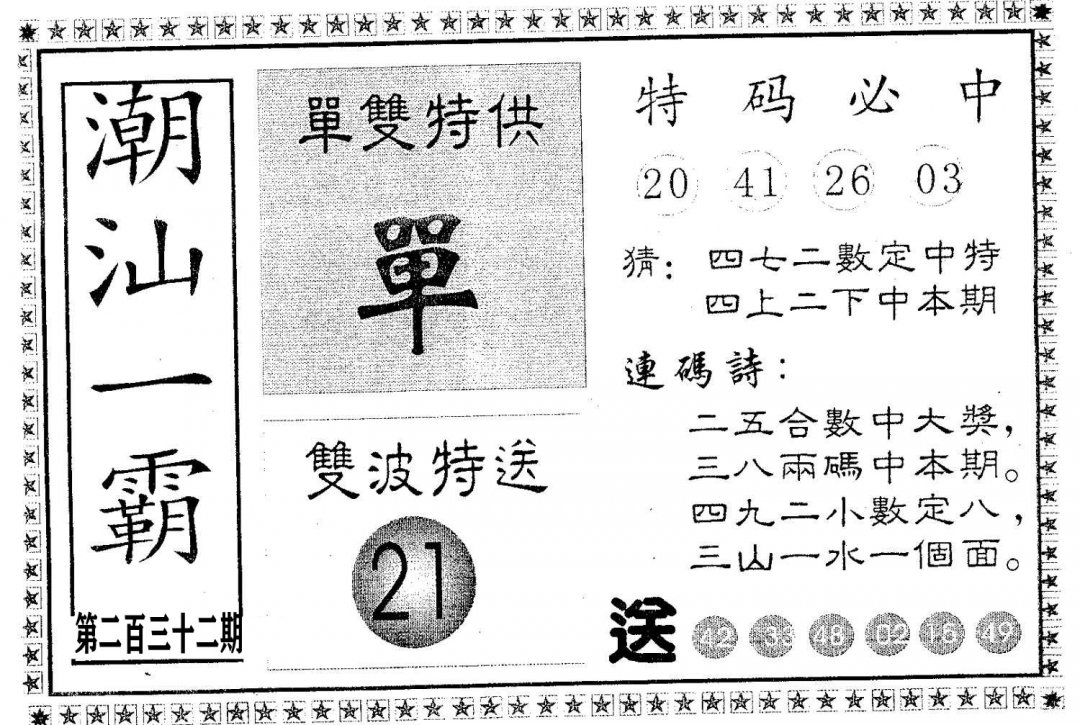 潮汕一霸
第二百三十二期
單雙特供
單
雙波特送
21
特码必中
20 41 26 03
猜：四七二數定中特
四上二下中本期
連碼詩：
二五合數中大獎，
三八兩碼中本期。
四九二小數定八，
三山一水一個面。
送 42 33 48 02 16 49